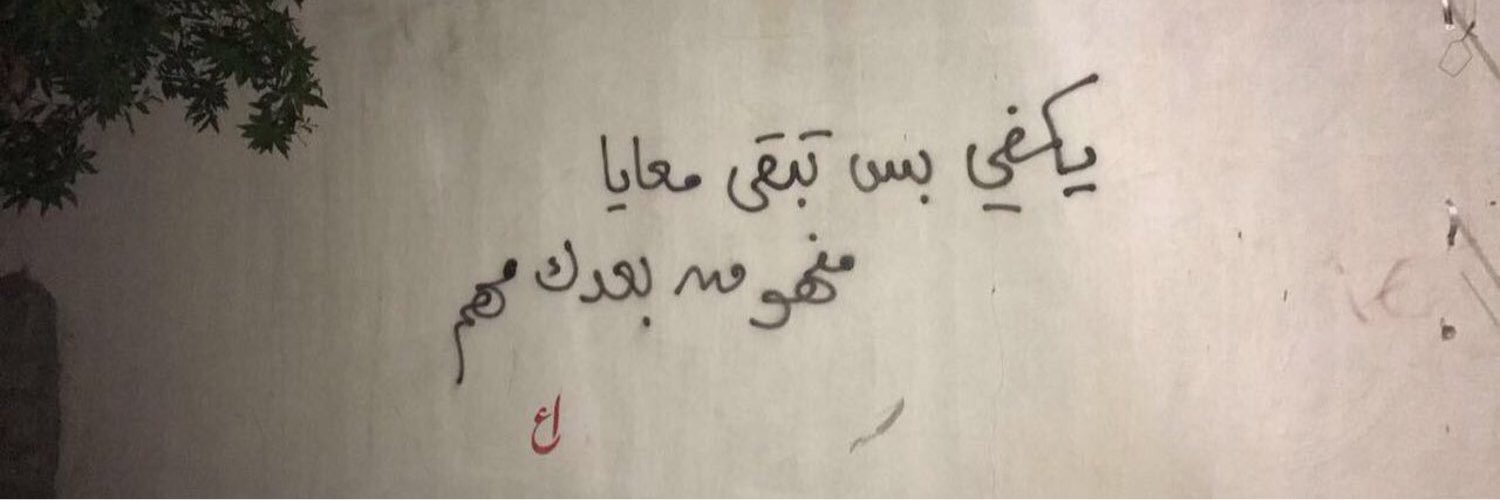 يكفي بس تبقى معايا
منهو من بعدك مهم
اع